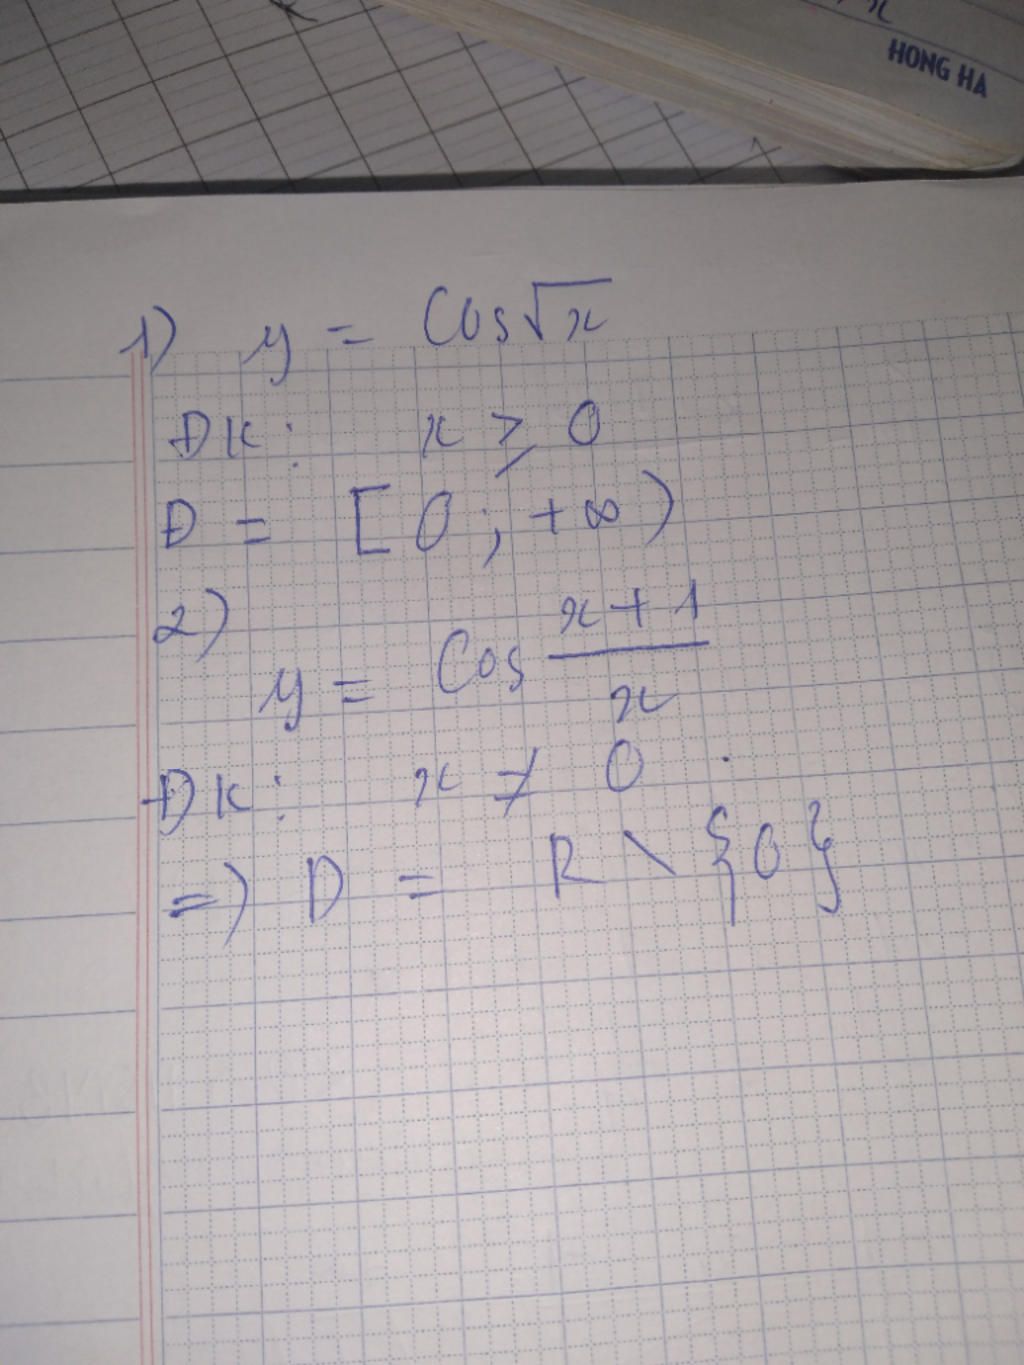 HONG HA
1) y = Cos√x
ĐK: x ≥ 0
D = [0; +∞)
2)
y = Cos (x+1)/x
ĐK: x ≠ 0.
=) D = R \ {0}